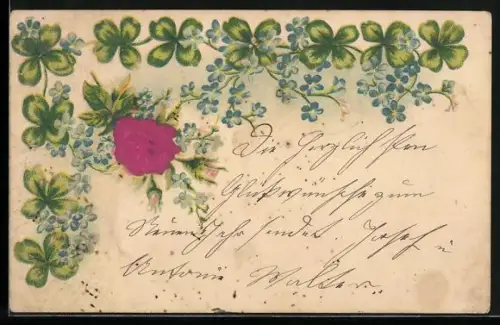 Die herzlichsten
Glükwünsche zum
Neuen Jahr sendet Josef u
Antonie Walter.